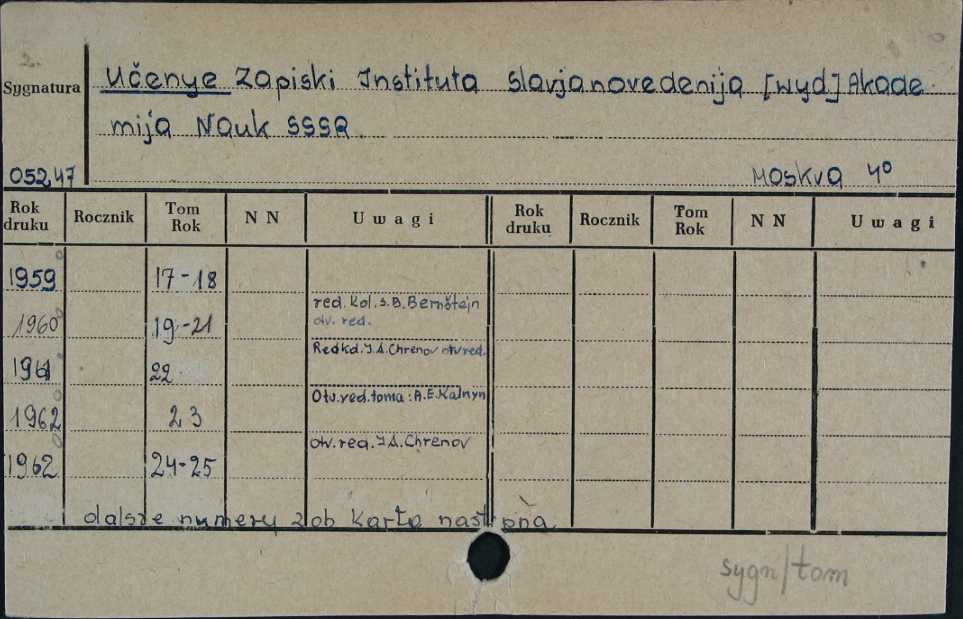 2.
Sygnatura
Učenye Zapiski Instituta Slavjanovedenija [wyd] Akade
mija Nauk SSSR.
05247
Moskva 4º
Rok druku Rocznik Tom Rok N N Uwagi Rok druku Rocznik Tom Rok N N Uwagi
1959 17-18
red. kol. S.B. Bernštejn
otv. red.
1960 19-21
Redkol. I.A. Chrenov otv red.
1961 22
Otv. red. toma: A.E. Kalnyn
1962 23
otv. red. I.A. Chrenov
1962 24-25
dalsze numery zob kartę następną
sygn/tom